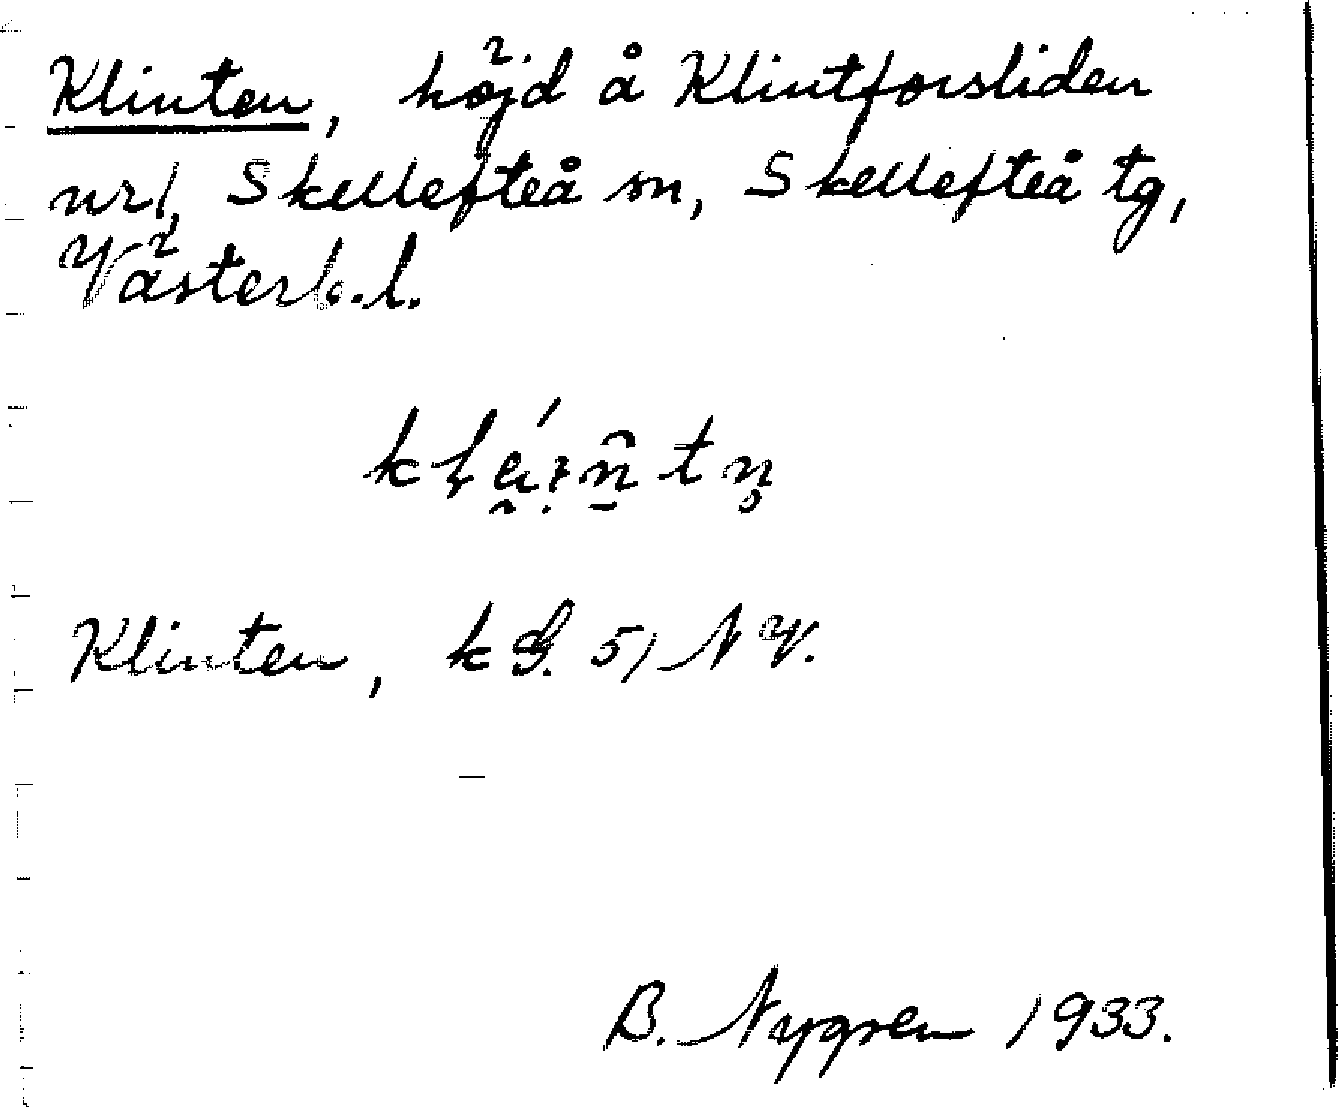 Klinten, höjd å Klintforsliden
nr 1, Skellefteå sn, Skellefteå tg,
Västerb. l.
Klinten, k G. 51 NV.
B. Nygren 1933.